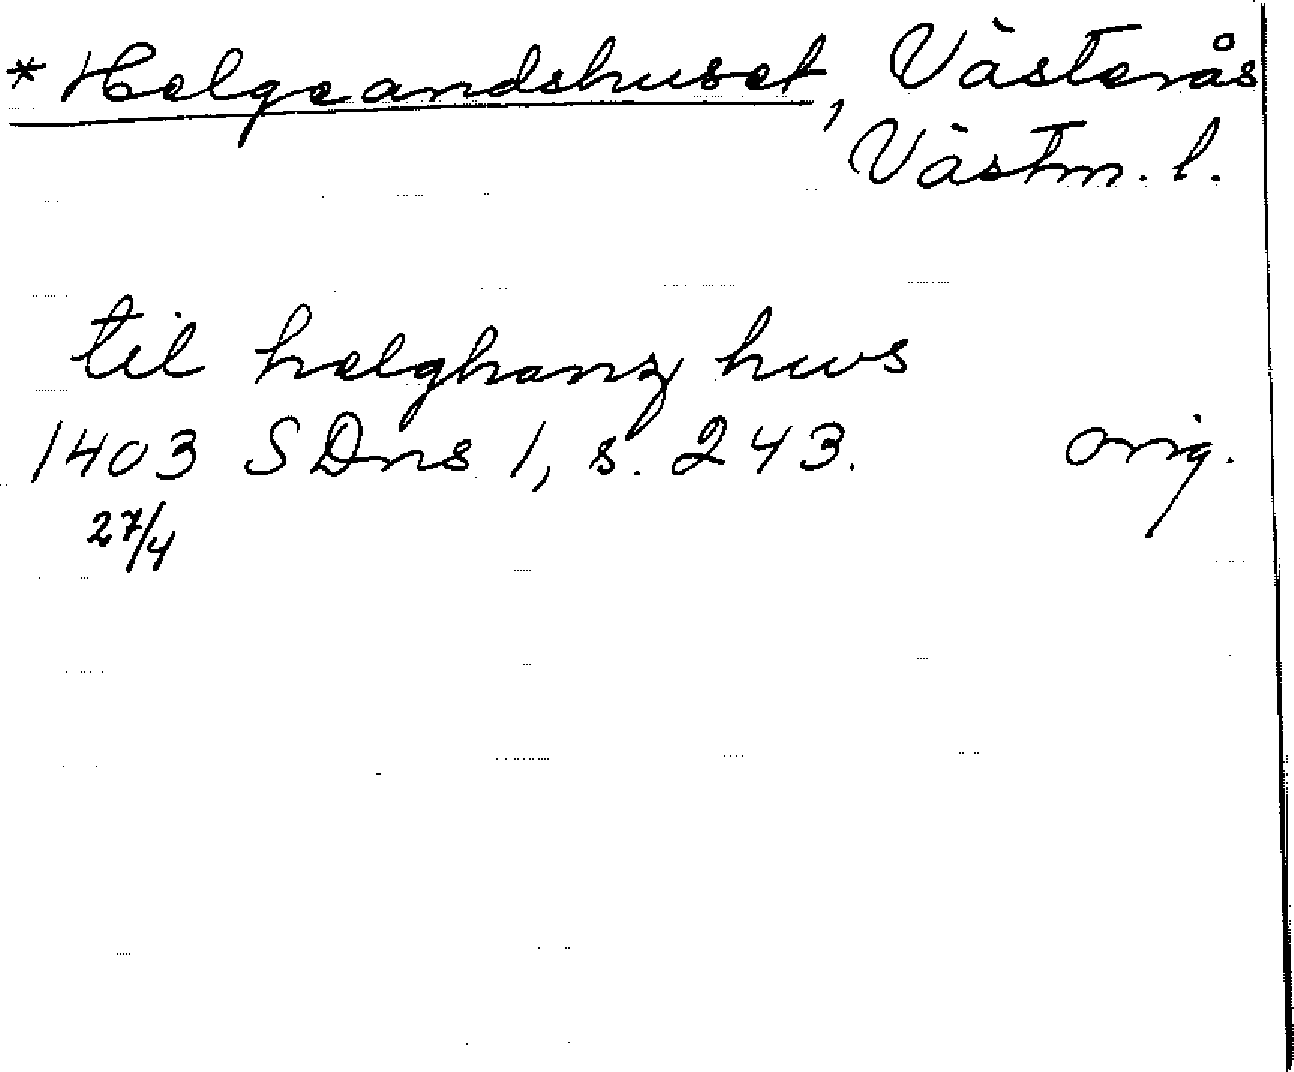 * Helgeandshuset, Västerås
Västm. l.
til helghanz hws
1403 SDns 1, s. 243. orig.
27/4